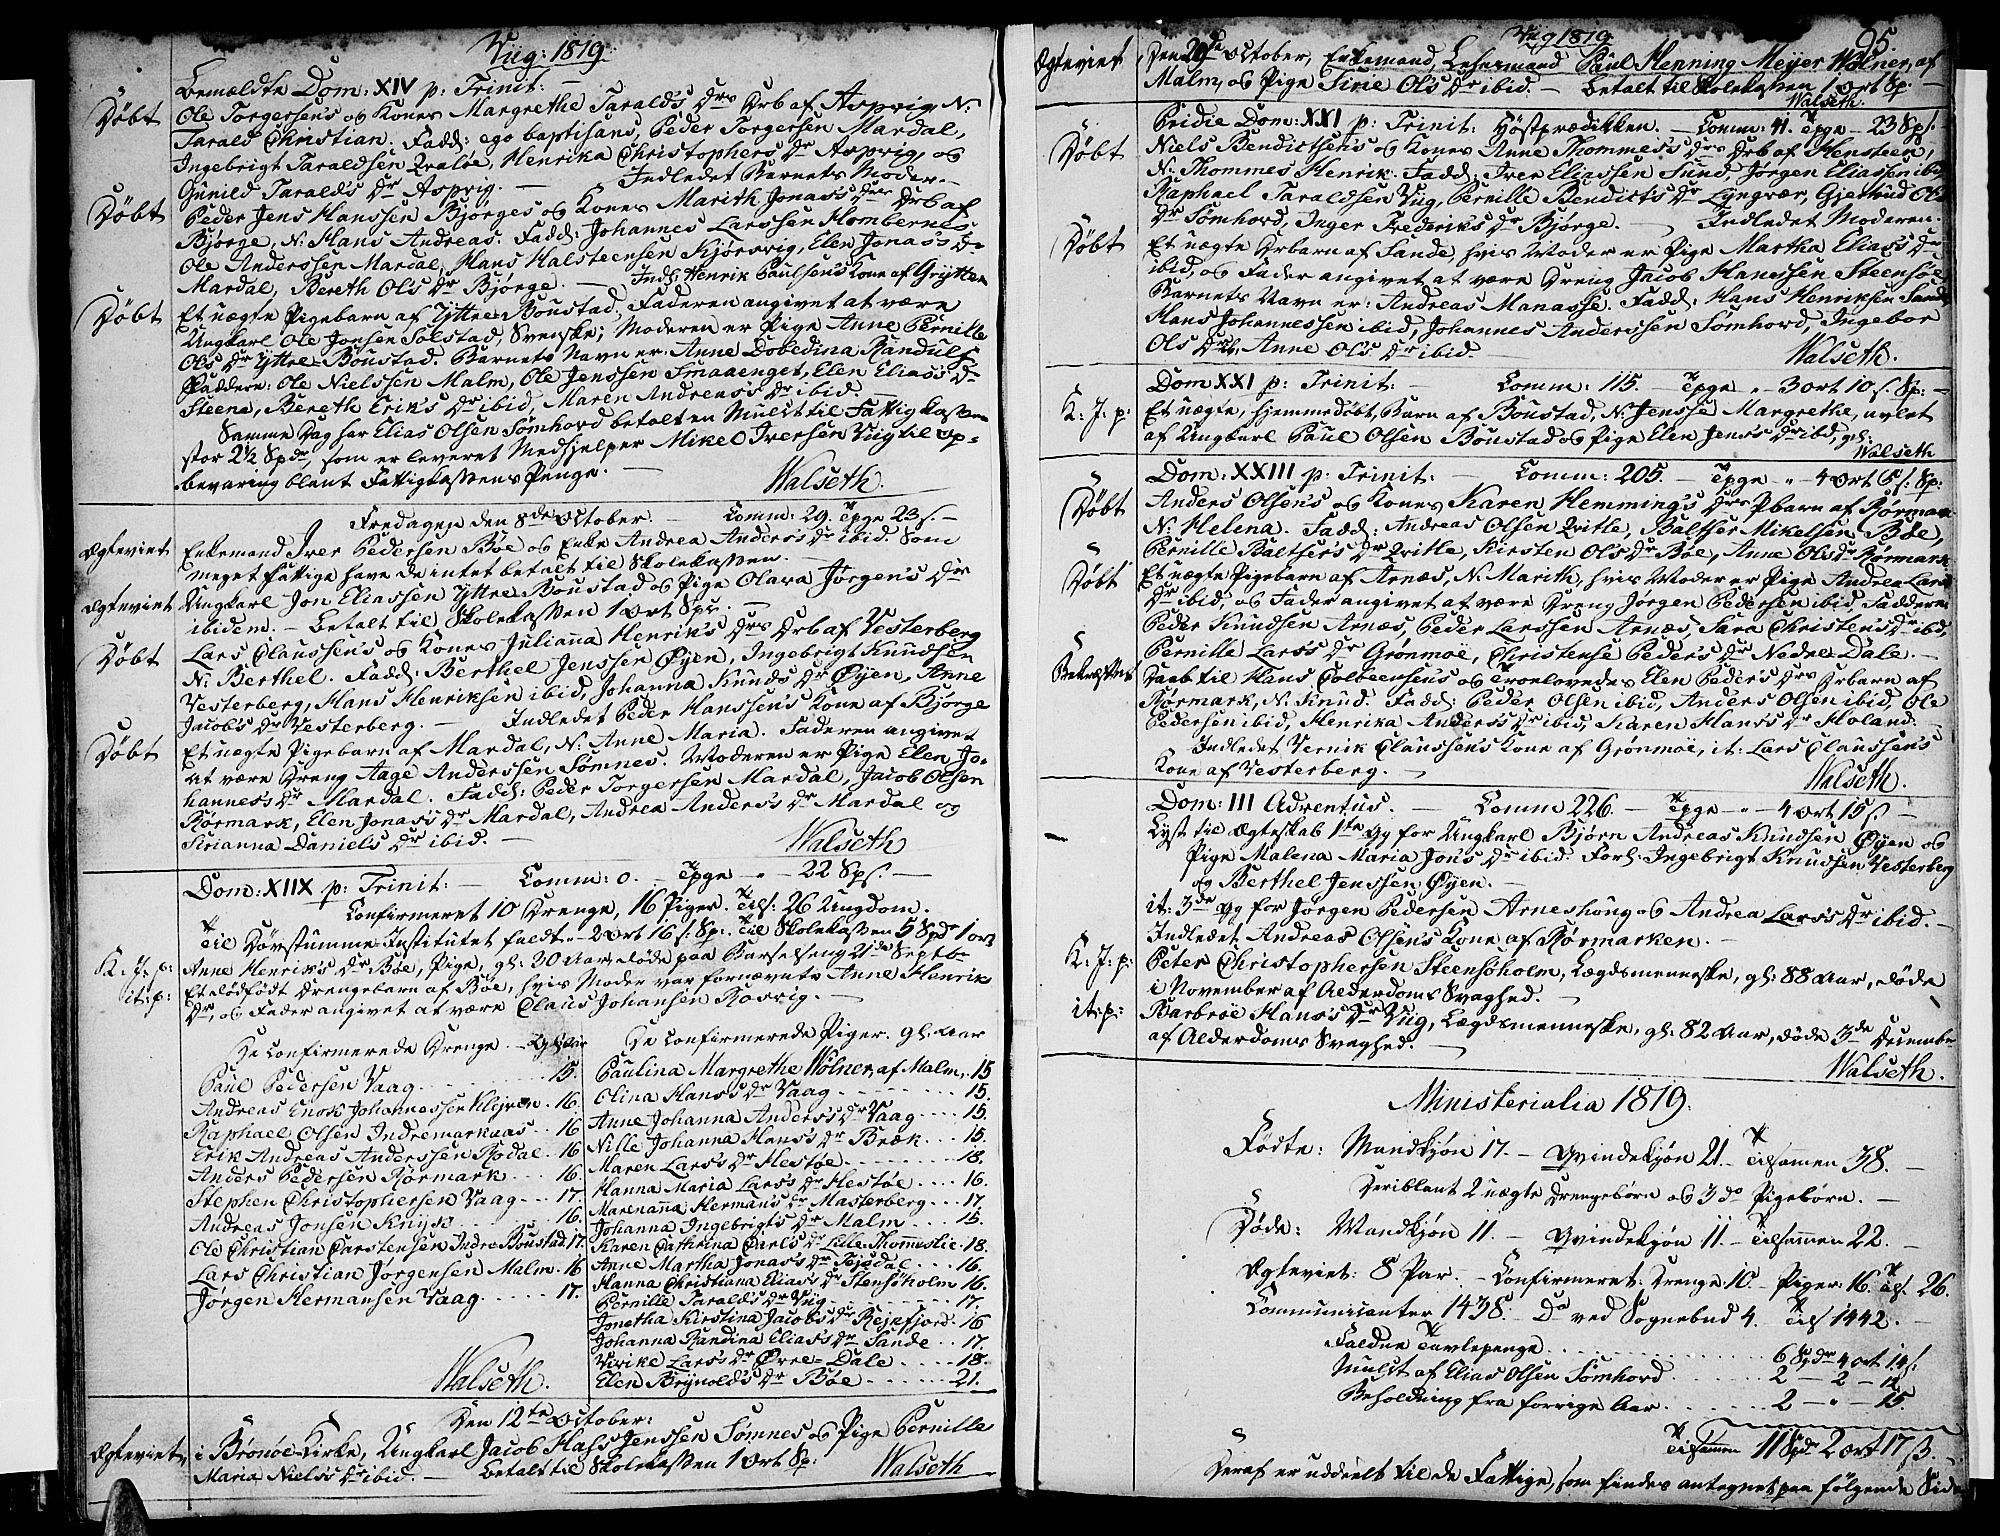 Vug: 1819.
Bemældte Dom: XIV p: Trinit:
Døbt
Ole Torgersen's og Kones Margrethe Tarald's Drs Drb af Asprig N.
Tarald Christian. Fadd: ego baptisans, Peder Torgersen Mardal,
Ingebrigt Taraldsen Qvalø, Henrika Christophers Dr Asprig, og
Gunild Tarald's Dr Asprig. — Indledet Barnets Moder. —
Døbt
Peder Jens Hanssen Bjørges og Kones Marith Jonas's Drs Drb af
Bjørge, N: Hans Andreas. Fadd: Johannes Larssen Hombernes,
Ole Anderssen Mardal, Hans Halsteensen Kjørsvig, Elen Jonas's Dr
Mardal, Bereth Ols Dr Bjørge. — Indl: Henrik Paulsen's Kone af Grytten
Døbt
Et uægte Pigebarn af Yttre Boustad, Faderen angivet at være
Ungkarl Ole Jonsen Solstad, Svenske; Moderen er Pige Anne Pernille
Ols Dr Yttre Boustad. Barnets Navn er: Anne Dobedina Randulf
Faddere: Ole Nielssen Malm, Ole Jenssen Smaaenget, Elen Elias's Dr
Steene, Bereth Erik's Dr ibid, Maren Andreas's Dr ibid. —
Samme Dag har Elias Olsen Sømhord betalt en Mulct til Fattig Kassen
stor 2½ Spdr, som er leveret Medhjelper Mikel Iversen Vug til op-
bevaring blant Fattigkassens Penge. —
Walseth.
Fredagen den 8de October. — Comm: 29. Tpge 23 s. —
Ægteviet
Enkemand Iver Pedersen Bøe og Enke Andrea Anders's Dr ibid. Som
meget fattige have de intet betalt til Skolekassen.
Ægteviet
Ungkarl Jon Eliassen Yttre Boustad og Pige Olava Jørgen's Dr
ibidem. — Betalt til Skolekassen 1 Ort Sp. —
Døbt
Lars Claussen's og Kones Julianna Henrik's Drs Drb af Vesterberg
N: Berthel. Fadd: Berthel Jenssen Øyen, Ingebrigt Knudsen
Vesterberg, Hans Henriksen ibid, Johanna Knuds Dr Øyen, Anne
Jacobs Dr Vesterberg. — Indledet Peder Hanssen's Kone af Bjørge
Døbt
Et uægte Pigebarn af Mardal, N: Anne Maria. Faderen angivet
at være Dreng Aage Anderssen Sømnes. Moderen er Pige Elen Jo-
hannes's Dr Mardal. Fadd: Peder Torgersen Mardal, Jacob Olsen
Rørmark, Elen Jonas's Dr Mardal, Andrea Anders's Dr Mardal og
Sirianna Daniels Dr ibid. —
Walseth
Dom: XIIX p: Trinit: — Comm: 0. — Tpge " — 22 Sps. —
Confirmeret 10 Drenge, 16 Piger. Tils: 26 Ungdom.
Til Døvstumme-Institutet faldt — 2 Ort 16 s. Sp: Til Skolekassen 5 Spdr 1 ort
K: J: p:
Anne Henrik's Dr Bøe, Pige, gl: 30 Aar, døde paa Barselseng 21de Septbr
it: p:
Et dødfødt Drengebarn af Bøe, hvis Moder var fornævnte Anne Henrik
Dr, og Fader angivet at være Claus Johansen Rosvig. —
De Confirmerede Drenge. — gl: Aar
Paul Pedersen Vaag . . . 15.
Andreas Enok Johannessen Klejven . 16.
Raphael Olsen Indremarknæs . . 16
Erik Andreas Anderssen Rodal . 16
Anders Pedersen Rørmark . . . 16.
Stephen Christophersen Vaag . . . 17.
Andreas Jonsen Knyss . . . 16.
Ole Christian Carstensen Indre Boustad 17.
Lars Christian Jørgensen Malm . 16
Jørgen Hermansen Vaag . . . 17.
Walseth.
De Confirmerede Piger. gl: Aar
Paulina Margrethe Wølner, af Malm, . 15
Olina Hans's Dr Vaag . . . 15.
Anne Johanna Anders's Dr Vaag . . . 15.
Nille Johanna Hans's Dr Bræk . . . 15.
Maren Lars's Dr Hestøe . . . 18.
Hanna Maria Lars's Dr Hestøe . . . 16.
Marenanna Herman's Dr Masterberg . . 17.
Johanna Ingebrigts Dr Malm . . . 15.
Karen Cathrina Carl's Dr Lille-Thommeslie . 18.
Anne Martha Jonas's Dr Tejsdal . . . 16.
Hanna Christiana Elias's Dr Stensøholm 16.
Pernille Tarald's Dr Vug . . . 17.
Jonetha Kirstina Jacobs Dr Rejnfjord . 16
Johanna Randina Elias's Dr Sande . . 17.
Virike Lars's Dr Øvre-Dale . . . 18.
Elen Brynold's Dr Bøe . . . 21.
Den 12te October:
Ægteviet,
i Brønøe-Kirke, Ungkarl Jacob Hass Jenssen Sømnes og Pige Pernille
Maria Niels's Dr ibid. — Betalt til Skolekassen 1 Ort Sp:
Walseth
Vug 1819.
95.
Ægteviet
Den 20de October, Enkemand, Lehnsmand Paul Henning Meyer Wølner, af
Malm, og Pige Sirie Ols Dr ibid. — Betalt til Skolekassen 1 Ort Sp. —
Walseth.
Pridie Dom: XXI p: Trinit: Høstprædikken. — Comm: 41. Tpge — 23 Sps.
Døbt
Niels Bendictsen's og Kones Anne Thommes's Drs Drb af Hensteen,
N: Thommes Henrik. Fadd: Iver Eliassen Sund, Jørgen Eliassen ibid,
Raphael Taraldsen Vug, Pernille Bendict's Dr Lyngvær, Gjertrud Ols
Dr Sømhord, Inger Frederik's Dr Bjørge. — Indledet Moderen. —
Døbt
Et uægte Drbarn af Sande, hvis Moder er Pige Martha Elias's Dr
ibid, og Fader angivet at være Dreng Jacob Hanssen Steensøe
Barnets Navn er: Andreas Manasse. Fadd: Hans Henriksen Sande
Hans Johannessen ibid, Johannes Anderssen Sømhord, Ingebor
Ols Dr ib, Anne Ols Dr ibid. —
Walseth.
Dom XXI p: Trinit: — Comm: 115. — Tpge " — 3 ort 10 s. Sp: —
K: J: p:
Et uægte, hjemmedøbt, Barn af Boustad, N: Jensse Margrethe, avlet
af Ungkarl Paul Olsen Boustad og Pige Elen Jens's Dr ibid, gl:
Walseth
Dom: XXIII p: Trinit: — Comm: 205. — Tpge " — 4 Ort 6 s. Sp:
Døbt
Anders Olsen's og Kones Karen Hemming's Drs Pbarn af Rørmark
N: Helena. Fadd: Andreas Olsen Qvitle, Baltser Mikelsen Bøe,
Pernille Baltser's Dr Qvitle, Kirsten Ols Dr Bøe, Anne Ols Dr Rørmark
Døbt
Et uægte Pigebarn af Arnæs, N: Marith, hvis Moder er Pige Andrea Lars
Dr ibid, og Fader angivet at være Dreng Jørgen Pedersen ibid, Faddere
Peder Knudsen Arnæs, Peder Larssen Arnæs, Sara Christen's Dr ibid,
Pernille Lars's Dr Grønmoe, Christense Peder's Dr Nedre Dale. —
Bekræftet
Daab til Hans Tolbeensen's og Troelovedes Elen Peder's Drs Drbarn af
Rørmark, N: Knud. Fadd: Peder Olsen ibid, Anders Olsen ibid, Ole
Pedersen ibid, Henrika Anders's Dr ibid, Karen Hans's Dr Holand. —
Indledet Vernik Claussen's Kone af Grønmoe, it: Lars Claussen's
Kone af Vesterberg. —
Walseth.
Dom: III Adventus. — Comm 226. — Tpge " — 4 Ort 15 s —
Lyst til Ægteskab 1te Gg for Ungkarl Bjørn Andreas Knudsen Øyen og
Pige Malena Maria Jon's Dr ibid. Forl: Ingebrigt Knudsen Vesterberg
og Berthel Jenssen Øyen. —
it: 3de Gg for Jørgen Pedersen Arneshoug og Andrea Lars's Dr ibid. —
Indledet Andreas Olsen's Kone af Rørmarken. —
K: J: p:
Peter Christophersen Steensøholm, Lægdsmenneske, gl: 88 Aar, døde
i November af Alderdoms Svaghed. —
it: p:
Barbroe Hans's Dr Vug, Lægdsmenneske, gl: 82 Aar, døde 3de Decembr
af Alderdoms Svaghed. —
Walseth.
Ministerialia 1819.
Fødte: Mandkjøn 17. — Qvindekjøn 21. — Tilsammen 38. —
Deriblant 2 uægte Drengebørn og 3 do Pigebørn. —
Døde: Mandkjøn 11. — Qvindekjøn 11. — Tilsammen 22. —
Ægteviet: 8 Par. — Confirmeret: Drenge 10 — Piger: 16. Tils. 26.
Communicanter 1438. — Do ved Sognebud 4. Tils 1442. —
Faldne Tavlepenge . . . 6 Spdr 4 ort 14 s:
Mulct af Elias Olsen Sømhord . . . 2 — 2 — 12
Beholdning fra forrige Aar . . . 2 — " — 15
Tilsammen 11 Spdr 2 ort 17 s.
Deraf er uddeelt til de Fattige, som findes antegnet paa følgende Side